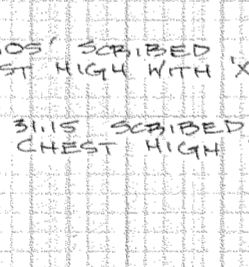 .05' SCRIBED
ST HIGH WITH 'X
31.15 SCRIBED
CHEST HIGH